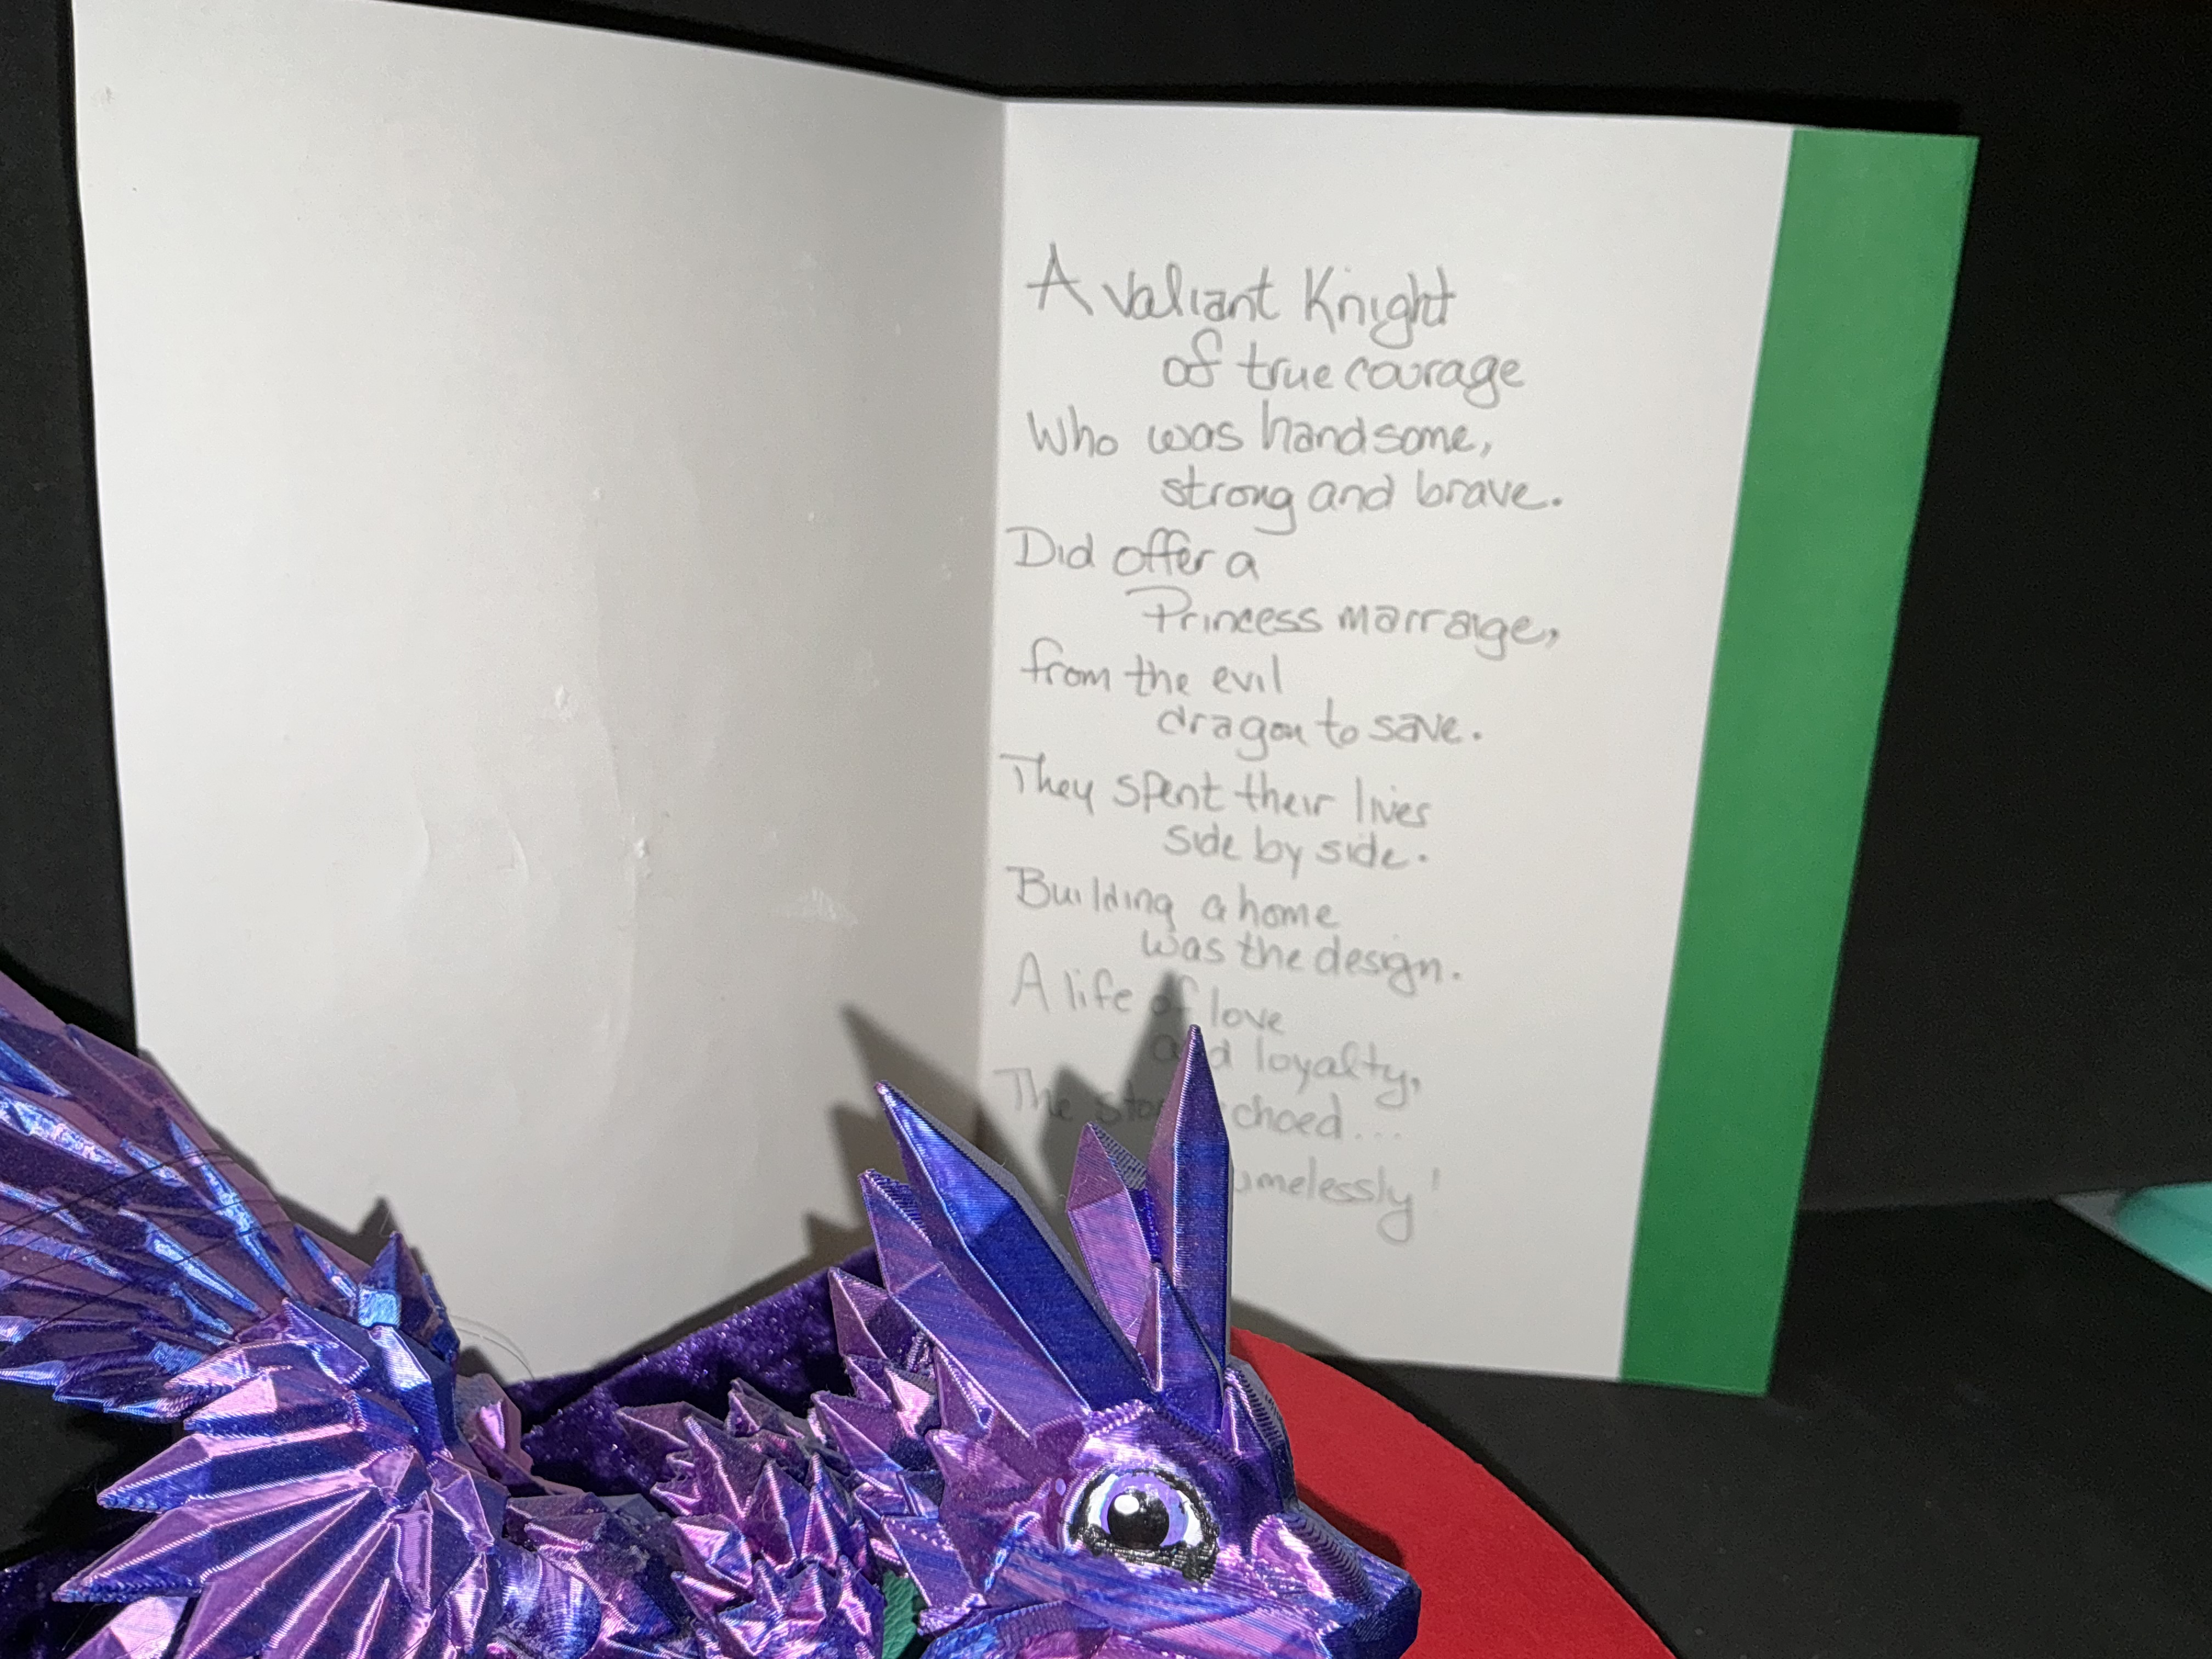 A Valiant Knight
of true courage
Who was handsome,
strong and brave.
Did offer a
Princess marraige,
from the evil
dragon to save.
They spent their lives
side by side.
Building a home
was the design.
A life of love
and loyalty,
The